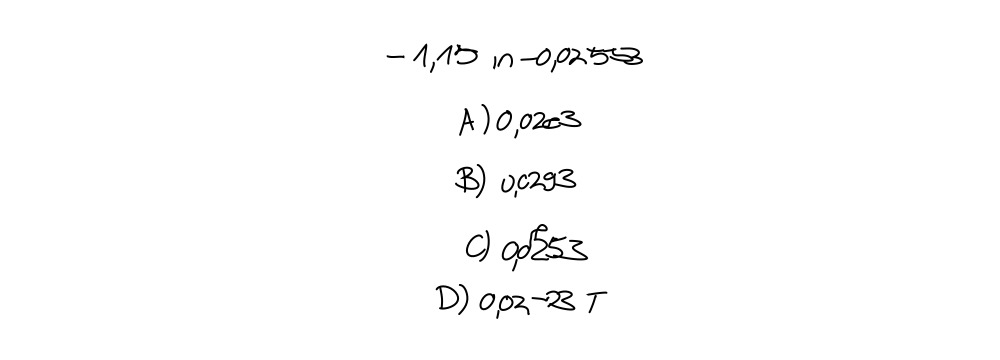 -1,15 in -0,02553
A) 0,0203
B) 0,0293
C) 0,0253
D) 0,02-23 T